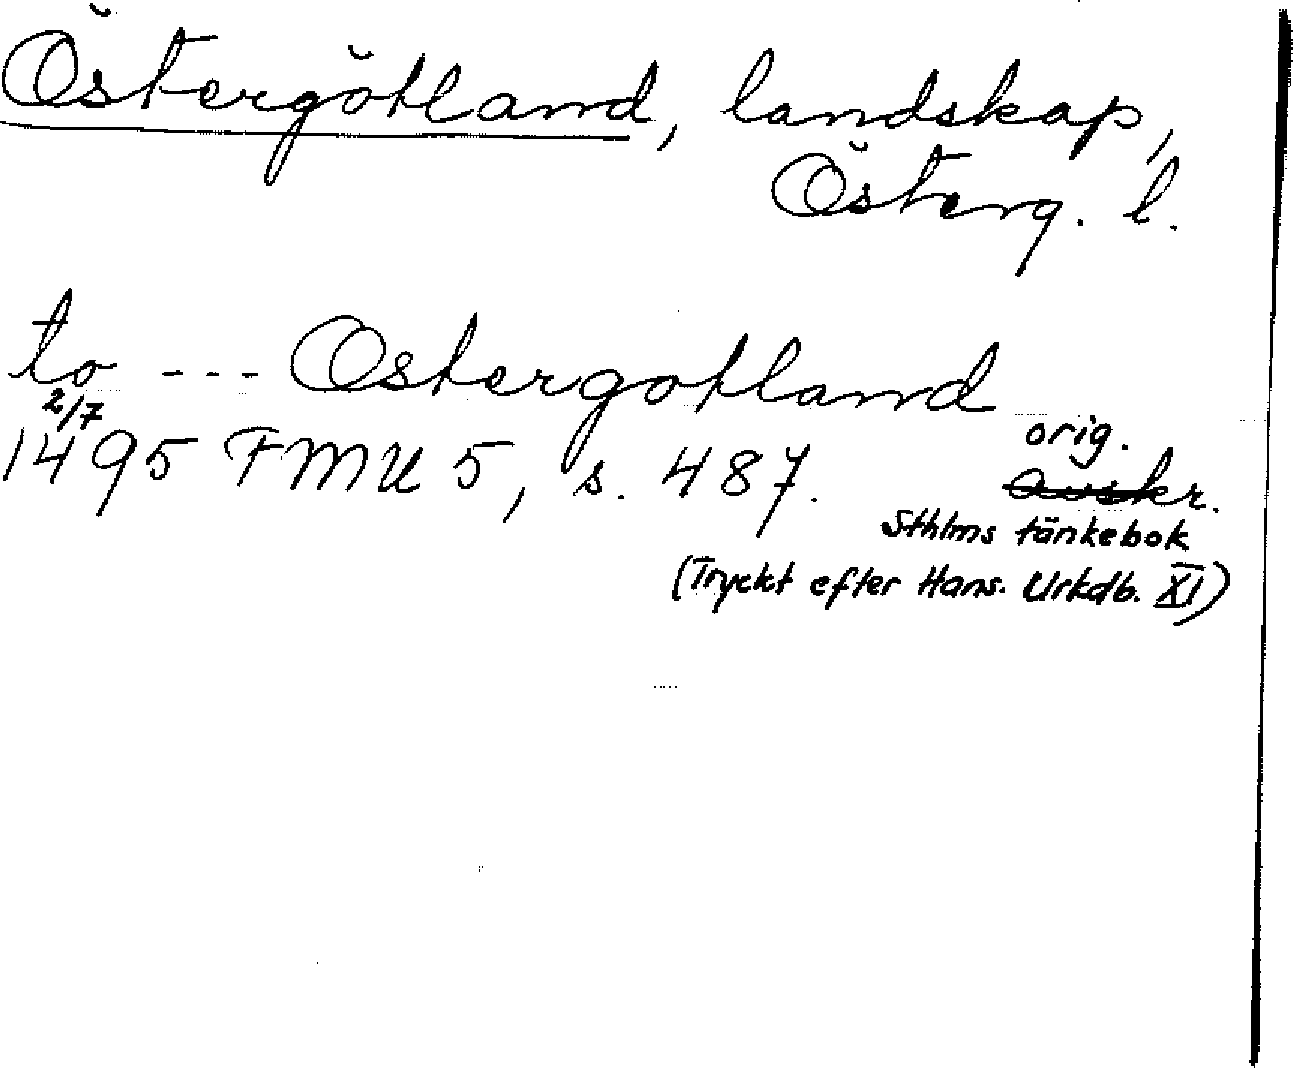 Östergötland, landskap,
Österg. l.
to --- Ostergotland
2/7
1495 FMU 5, s. 487.
orig.
avskr.
Sthlms tänkebok
(Tryckt efter Hans. Urkdb. XI)